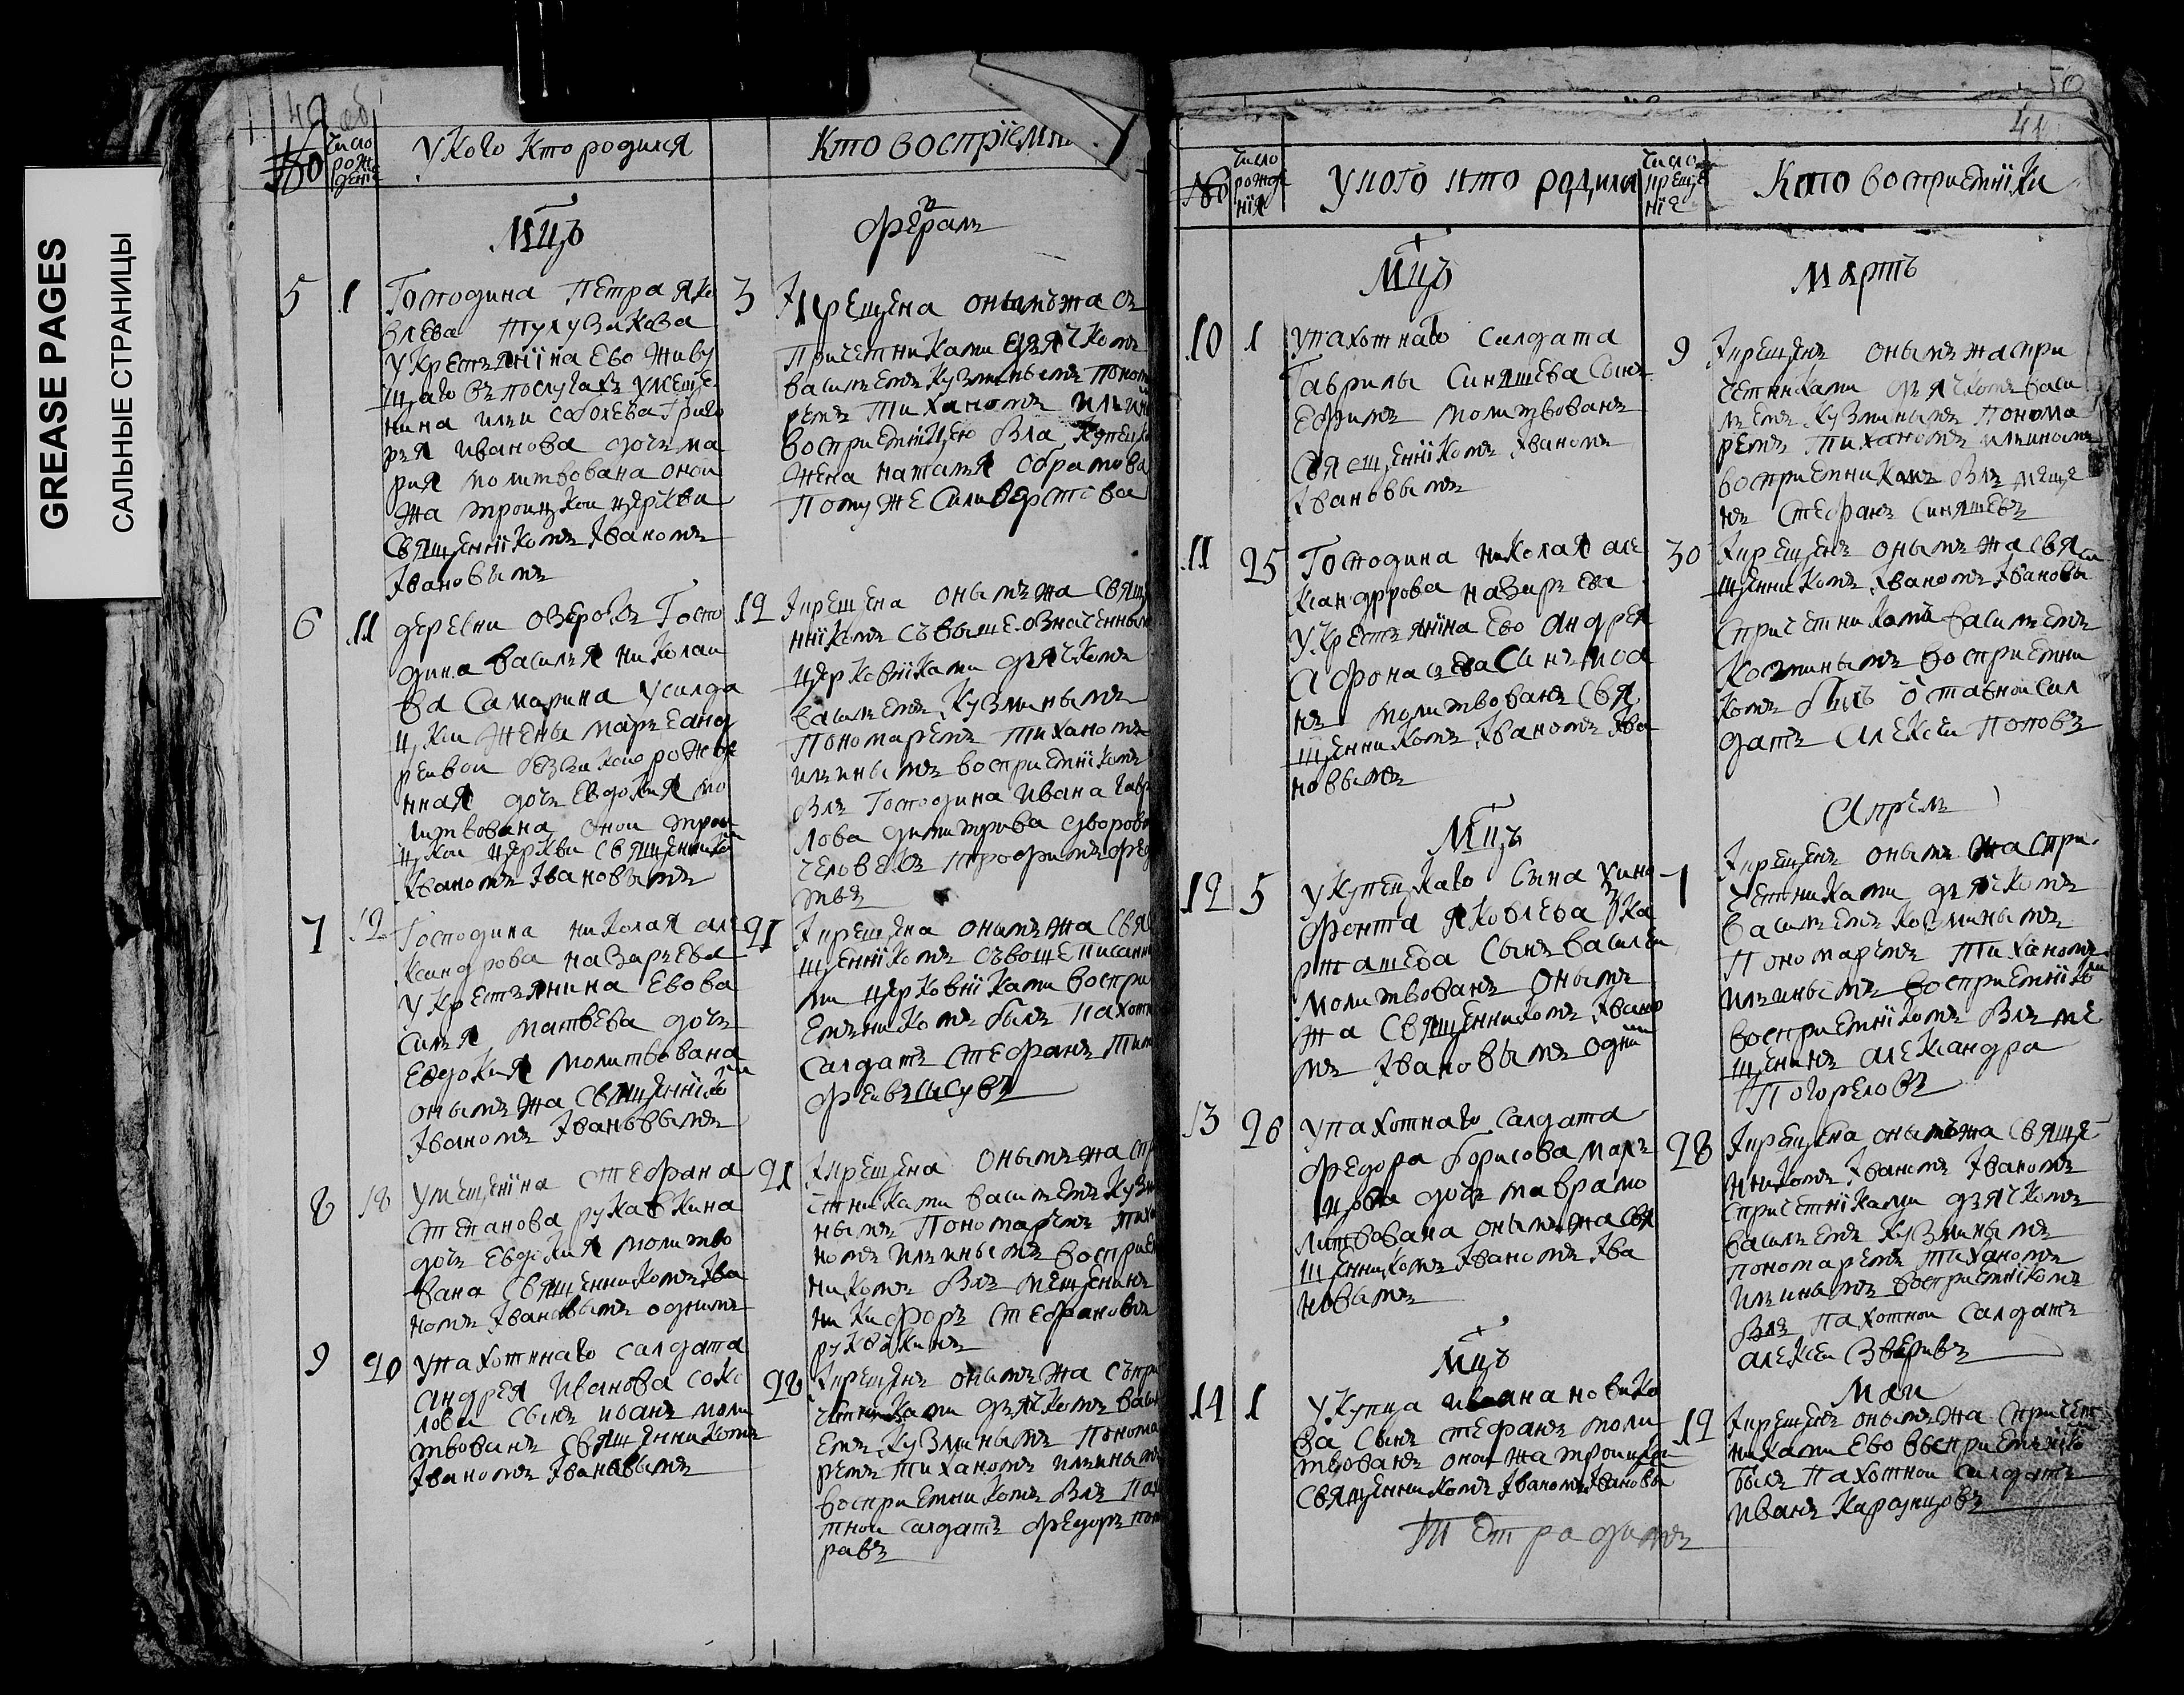 GREASE PAGES
САЛЬНЫЕ СТРАНИЦЫ
49 об
№
число рождения
У кого кто родился
Кто восприемн
Мцъ
Февралъ
5 1
Господина Петра Яко
влева
У крестьянина ево живу
щаго въ послугахъ у меще
нина или Соболева Григо
рья Иванова дочь Ма
рия молитвована оной
жа троицкой церкви
священникомъ Иваномъ
Ивановымъ
3
Крещена онымъ жа съ
причетниками дьячкомъ
васильемъ Кузминымъ поно
ремъ Тиханомъ Ильины
восприемницею была купецка
жена Наталья
Помужe Силиверстова
6 11
деревни Озерокъ Госпо
дина Василья Николаи
ва Самарина у салда
цкой жены Марьи Анд
реивой рожде
нная дочь Евдокия мо
литвована оной трои
цкой церкви священнико
Иваномъ Ивановымъ
12
Крещена онымъ жа свящ
нникомъ съ вышеозначенны
церковниками дьячкомъ
васильемъ Кузминымъ
Пономаремъ Тиханомъ
ильинымъ восприемникомъ
былъ Господина Ивана Гавр
лова Димитрива дворово
человекъ Профилъ
7 12
Господина Николая Але
ксандрова Назарьева
у крестьянина Евова
Силы Матвева дочь
Евдокия молитвована
онымъ жа священнико
Иваномъ Ивановымъ
21
Крещена онымъ жа свя
щенникомъ съвышеписанн
ми церковниками воспри
емникомъ былъ пахотн
салдатъ Стефанъ Тим
8 18
У мещенина Стефана
Степанова Рукавкина
дочь Евдокия молитво
вана священникомъ Ива
номъ Ивановымъ однимъ
21
Крещена онымъ жа съ пр
етниками васильемъ Кузм
нымъ Пономаремъ Тиха
номъ Ильинымъ восприем
никомъ былъ мещенинъ
Никифоръ Стефановъ
Рукавкинъ
9 20
У пахотннаго салдата
Андрея Иванова Соко
лова сынъ Иоанъ моли
твованъ священникомъ
Иваномъ Ивановымъ
22
Крещенъ онымъ жа съ при
четниками дьячкомъ Васил
емъ Кузминымъ Понома
ремъ Тиханомъ Ильиным
восприемникомъ былъ пахо
тнои салдатъ Федоръ
50
44
№
число рожде нiя
У кого кто родился
число креще нiя
Кто восприемнiки
Мцъ
Мартъ
10 1
У пахотнаго салдата
Гаврилы Синяшева сынъ
Ефимъ молитвованъ
священнiкомъ Иваномъ
Ивановымъ
9
Крещенъ онымъ жа с при
четниками дьячкомъ Васи
льемъ Кузминымъ Понома
ремъ Тиханомъ Ильиномъ
восприемникомъ былъ меще
нъ Стефанъ Синяшевъ
11 25
Господина Николая Але
ксандрова Назарьева
У крестьянина Ево Андрея
Афонасьева сынъ Иоа
нъ молитвованъ свя
щенникомъ Иваномъ Ива
новымъ
30
Крещенъ онымъ жа свя
щенникомъ Иваномъ Ивановы
с причетникомъ Васильемъ
Козминымъ восприемни
комъ былъ отставной сал
датъ Алексеи Поповъ
Мцъ
Апрель
12 5
У купецкаго сына
Яковлева
сынъ Василеи
молитвованъ онымъ
жа священникомъ Ивано
мъ Ивановымъ одни
7
Крещенъ онымъ жа с при
четниками дьячкомъ
Васильемъ Козминымъ
Пономаремъ Тиханомъ
Ильинымъ восприемнико
восприемнiкомъ былъ ме
щенинъ Александра
Погореловъ
13 26
У пахотнаго салдата
Федора Борисова Маль
цова дочь Мавра мо
литвована онымъ жа свя
щенникомъ Иваномъ Ива
новымъ
28
Крещена онымъ жа свяще
нникомъ Иваномъ Иваномъ
с причетнiками дьячкомъ
васильемъ Кузминымъ
пономаремъ Тиханомъ
Ильинымъ восприемнiкомъ
былъ пахотнои салдатъ
Алексеи Зверивъ
Мцъ
Маи
14 1
У купца Ивана Новико
ва сынъ Стефанъ моли
твованъ онои жа троицкои
священникомъ Иваномъ Ивановы
19
Крещенъ онымъ жа с причет
никами Ево восприемнико
былъ пахотнои салдатъ
Иванъ